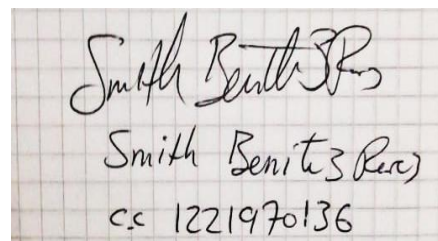 Smith Benit3
Smith Benit3 Perez
c.c 1221970136